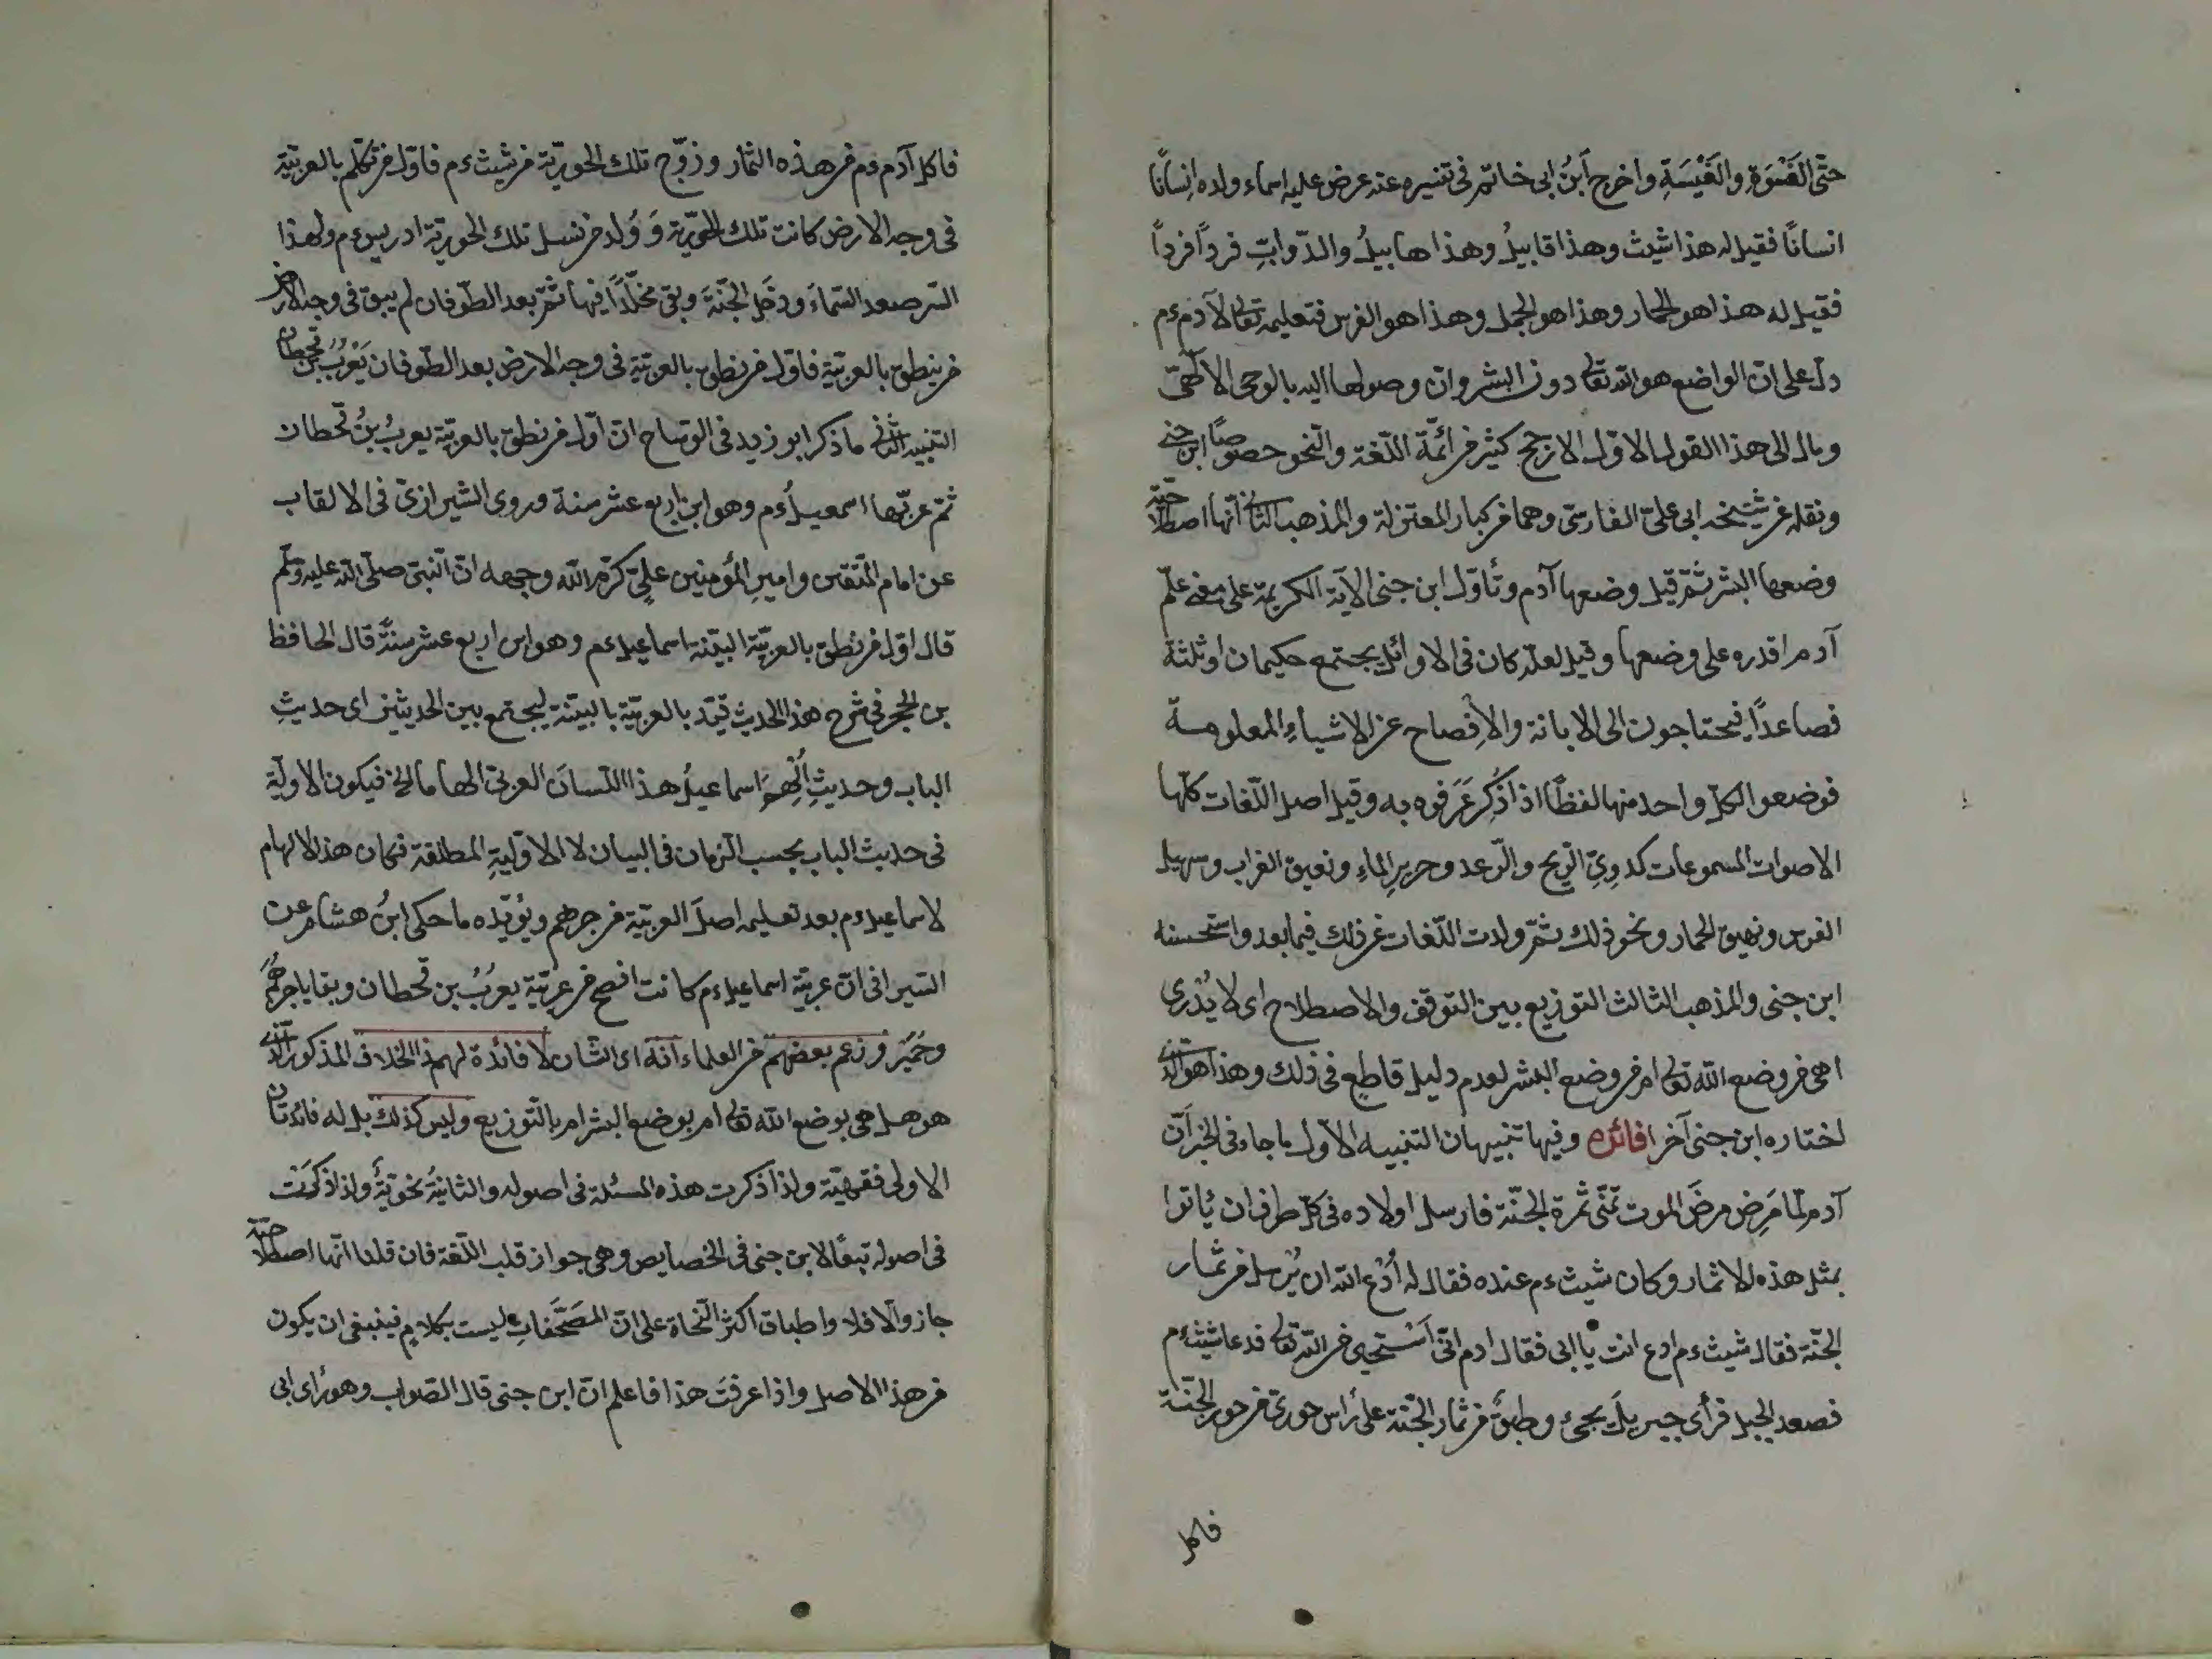 حتّى الفَسْوَةِ والفَسِيَةِ واخرج اَبنُ ابى خاتم فى تفسيره عنه عرض عليه اسماء ولده اِنسانًا
انسانًا فقيل له هذا شيث وهذا قابيلُ وهذا هابيلُ والدّوابّ فردًا فردًا
فقيل له هذا هو الحمار وهذا هو الجمل وهذا هو الفرس فتعليمه تعالى لآدم ءم
دلّ على انّ الواضع هو الله تعالى دون البشر وانّ وصولها اليه بالوحى الالٓهىّ
ومال الى هذا القول الاوّل الارجح كثير من ائمّة اللّغة والنّحو خصوصًا ابن جنى
ونقله عن شيخه ابى علىّ الفارسىّ وهما من كبار المعتزلة والمذهب الثانى انّها اصطلاحيّة
وضعها البشر ثمّ قيل وضعها آدم وتأوّل ابن جنى الآية الكريمة على معنى علّم
آدم اقدره على وضعها وقيل لعلّه كان فى الاوائل يجتمع حكيمان او ثلثة
فصاعدًا فيحتاجون الى الابانة والاِفصاح عن الاشياءِ المعلومة
فوضعوا لكلّ واحد منها لفظًا اذا ذُكِرَ عَرَفوه به وقيل اصل اللّغات كلّها
الاصوات المسموعات كدوِىّ الرّيح والرّعد وخرير الماءِ ونعيق الغراب وصهيل
الفرس ونهيق الحمار ونحو ذلك ثمّ ولدت اللّغات عن ذلك فيما بعد واستحسنه
ابن جنى والمذهب الثالث التوزيع بين التوقف والاصطلاح اى لا يُدْرى
اهى من وضع الله تعالى ام من وضع البشر لعدم دليل قاطع فى ذلك وهذا هو الذى
اختاره ابن جنى آخرا فائدة وفيها تنبيهان التنبيه الاوّل ما جاء فى الخبر اَنّ
آدم لمّا مَرِض مرضَ الموت تمنّى ثمرة الجنّة فارسل اولاده فى كلّ طرف ان يأتوا
بمثل هذه الاثمار وكان شيث ءم عنده فقال له اُدْعُ الله ان يُرسل من ثمار
الجنّة فقال شيث ءم ادع انت يا ابى فقال ادم انّى اَسْتحيى من الله تعالى فدعا شيث ءم
فصعد الجبل فرأى جبريل يجئ وطبقٌ من ثمار الجنّة على رأس حوريّة من حور الجنّة
فاكل
فاكل آدم ءم من هذه الثمار وزوّج تلك الحوريّة من شيث ءم فاوّل من تكلّم بالعربيّة
فى وجه الارض كانت تلك الحوريّة وَوُلد من نسل تلك الحوريّة ادريس ءم ولهذا
السّر صعد السّماءَ ودخل الجنّةَ وبقى مخلّدًا فيها ثمّ بعد الطّوفان لم يبق فى وجه الارض
من ينطق بالعربيّة فاوّل من نطق بالعربيّة فى وجه الارض بعد الطّوفان يَعْرُبُ بن قحطان
التنبيه الثانى ما ذكر ابو زيد فى الوشاح انّ اوّل من نطق بالعربيّة يعربُ بنُ قحطان
ثمّ عربّها اسمعيلُ ءم وهو ابن اربع عشر سنة وروى الشيرازىّ فى الالقاب
عن امام المتّقين وامير المؤمنين علِىّ كرّم الله وجهه انّ النّبىّ صلّى الله عليه وسلّم
قال اوّل من نطق بالعربيّة البيّنة اسماعيل ءم وهو ابن اربع عشر سنةً قال الحافظ
بن الحجر فى شرح هذا الحديث قيّد بالعربيّة بالبيّنة ليجتمع بين الحديثين اى حديثِ
الباب وحديثِ اُلْهِمَ اسماعيلُ هذا اللّسانَ العربىّ الهاما الخ فيكون الاوليّة
فى حديث الباب بحسب الزمان فى البيان لا الاوّليةِ المطلقة فكان هذا الالهام
لاسماعيل ءم بعد تعليمه اصلَ العربيّة من جرهم ويُؤيّده ما حكى ابنُ هشام عن
السّيرافى انّ عربيّة اسماعيل ءم كانت افصح من عربيّة يعرُبُ بن قحطان وبقايا جرهُم
وحِمْيَر وزعم بعضهم من العلماء انّه اى الشّان لا فائدة لهذا الخلاف المذكور الّذى
هو هل هى بوضع الله تعالى ام بوضع البشر ام بالتّوزيع وليس كذلك بل له فائدتان
الاولى فقهيّة ولذا ذكرت هذه المسئلة فى اصوله والثانيةُ نحويّةٌ ولذا ذكرَت
فى اصوله تبعًا لابن جنى فى الخصايص وهى جواز قلب اللّغة فان قلنا انّها اصطلاحيّة
جاز والّا فلا واطباق اكثر النّحاة على انّ المصَحّفاتِ ليست بكلامٍ فينبغى ان يكون
من هذا الاصل واذا عرفتَ هذا فاعلم انّ ابن جنى قال الصّواب وهو رأى ابى